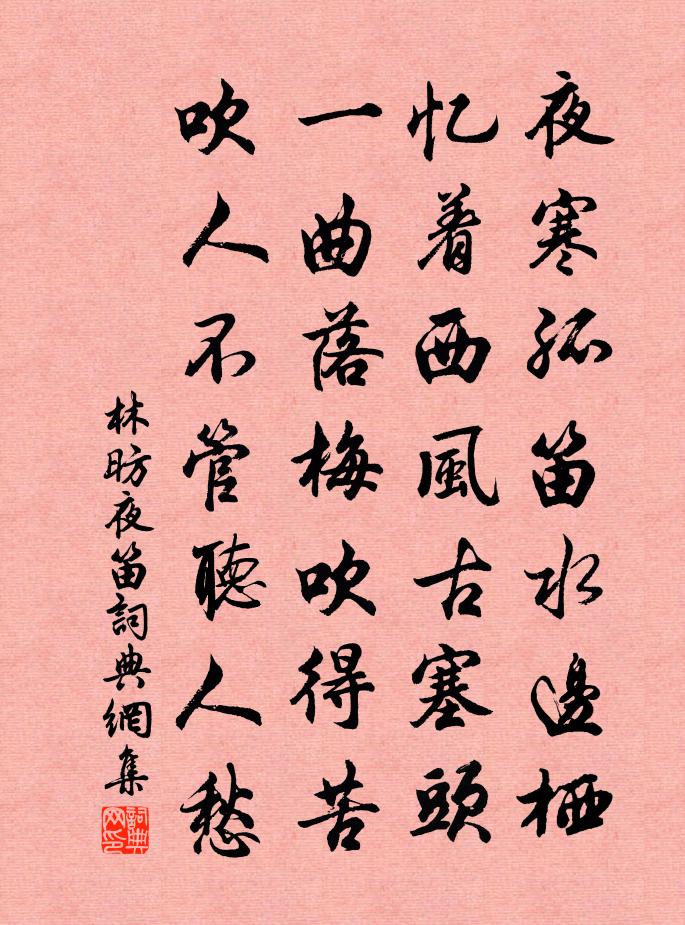 夜寒孤笛水邊栖
忆着西風古塞頭
一曲落梅吹得苦
吹人不管聽人愁
林昉夜笛詞典網集
詞典网印